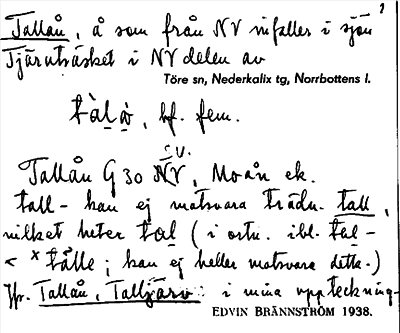 Tallån, å som från NV infaller i sjön
Tjäruträsket i NV delen av
Töre sn, Nederkalix tg, Norrbottens l.
bf. fem.
S.V.
Tallån G 30 NV, Moån ek.
tall- kan ej motsvara trädn. tall,
vilket heter tal (i ortn. ibl. tal-
< *talle; kan ej heller motsvara detta.)
Jfr. Tallån, Talltjärn i mina uppteckning-
EDVIN BRÄNNSTRÖM 1938.